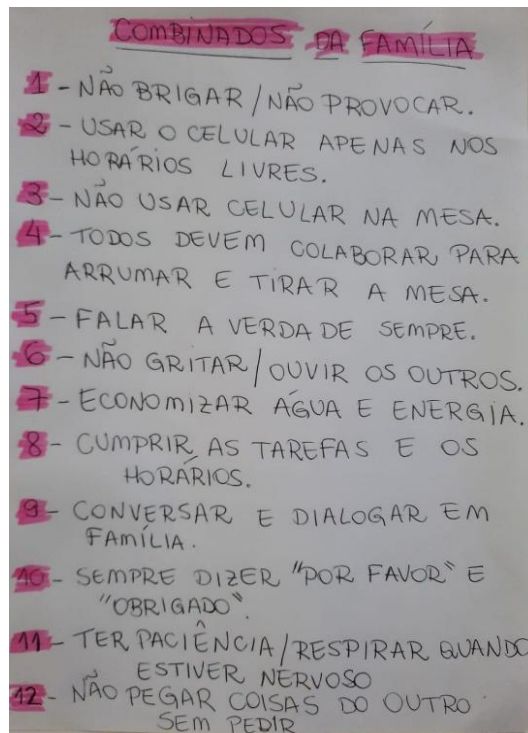 COMBINADOS DA FAMÍLIA
1 - NÃO BRIGAR / NÃO PROVOCAR.
2 - USAR O CELULAR APENAS NOS
HORÁRIOS LIVRES.
3 - NÃO USAR CELULAR NA MESA.
4 - TODOS DEVEM COLABORAR PARA
ARRUMAR E TIRAR A MESA.
5 - FALAR A VERDADE SEMPRE.
6 - NÃO GRITAR / OUVIR OS OUTROS.
7 - ECONOMIZAR ÁGUA E ENERGIA.
8 - CUMPRIR AS TAREFAS E OS
HORÁRIOS.
9 - CONVERSAR E DIALOGAR EM
FAMÍLIA.
10 - SEMPRE DIZER "POR FAVOR" E
"OBRIGADO".
11 - TER PACIÊNCIA / RESPIRAR QUANDO
ESTIVER NERVOSO
12 - NÃO PEGAR COISAS DO OUTRO
SEM PEDIR